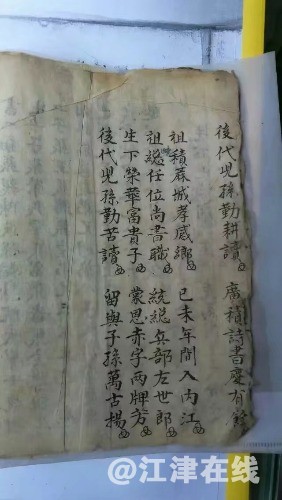 後代児孫勤耕讀 廣積詩書慶有餘
祖積蔴城孝感鄉 己未年間入内江
祖總任位尚書職 統總兵部左世郎
生下榮華富貴子 蒙恩赤字两牌芳
後代児孫勤苦讀 留與子孫萬古揚
@江津在线